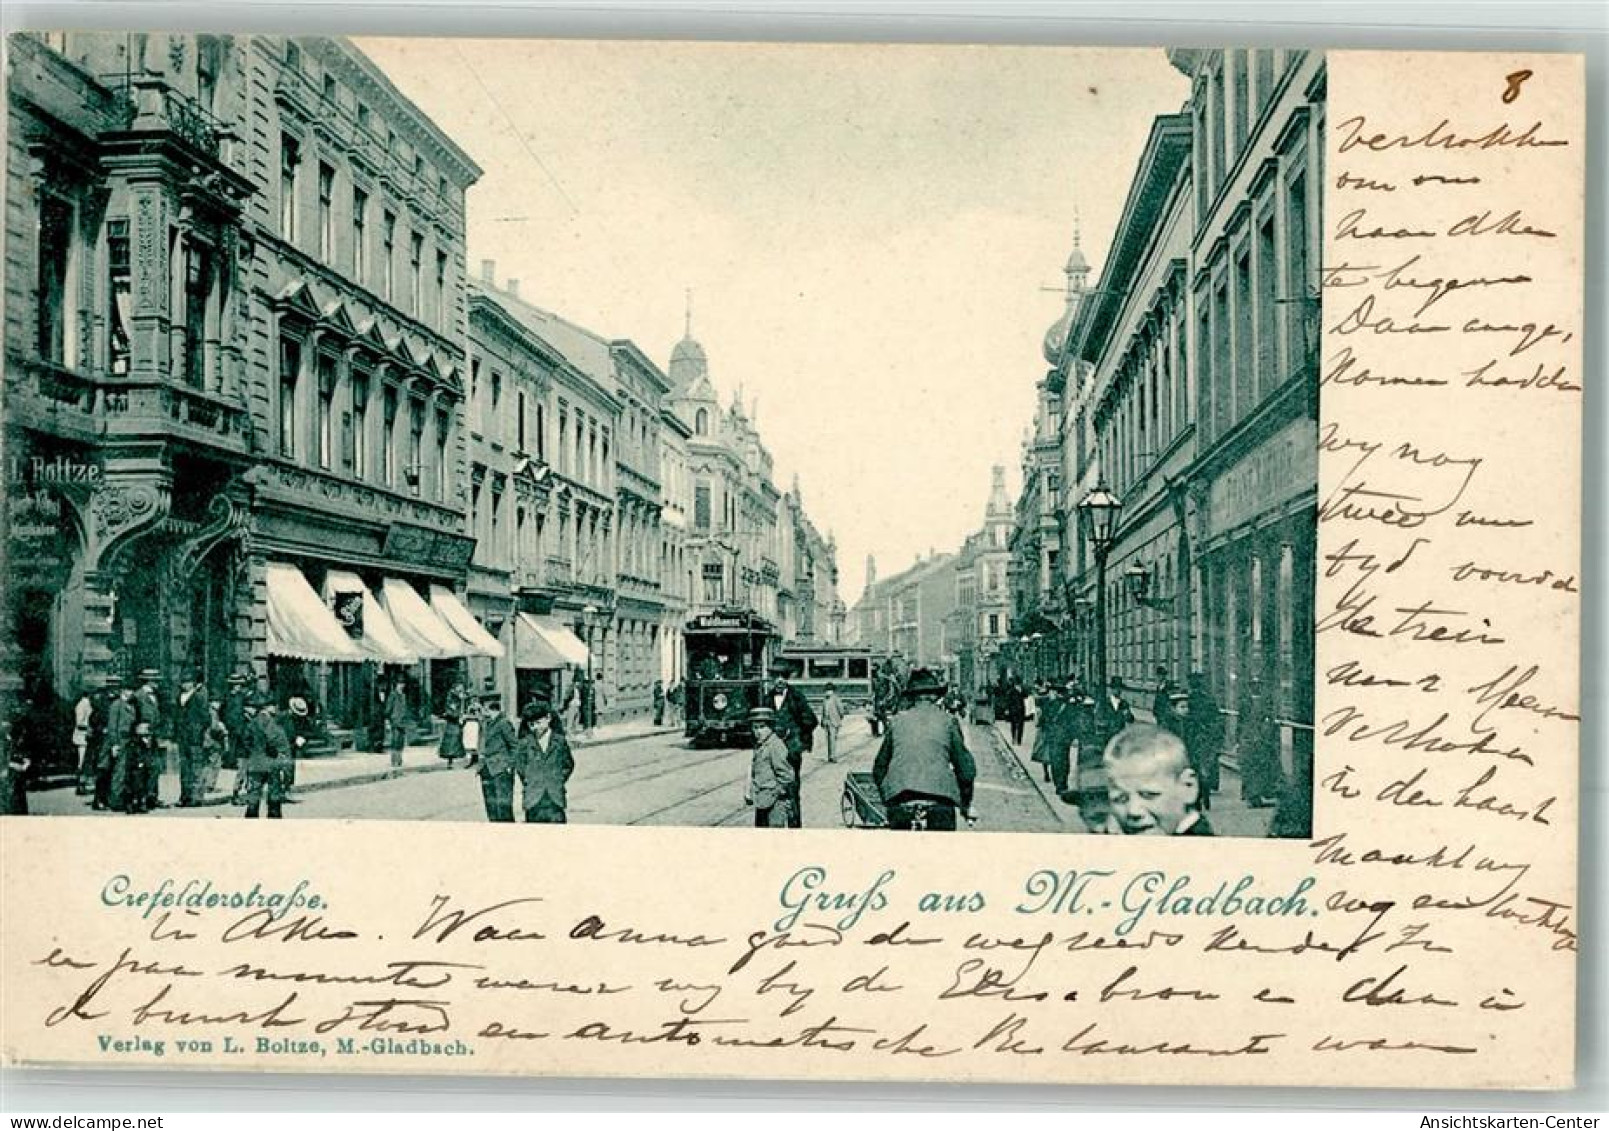 8
vertrokken
om ons
naar Aken
te begeven
Daar ange,
komen hadden
wy nog
twee uur
tyd voordat
de trein
naar
Vertrokken
in der haast
Maakten wy
nog een
L. Boltze
Crefelderstraße.
Gruß aus M.-Gladbach.
in Aken. Waar Anna goed de weg reeds kende. In
een paar minuten waren wy by de Elisabron en daar in
de buurt stond een automatische Restaurant waar
Verlag von L. Boltze, M.-Gladbach.
Ansichtskarten-Center